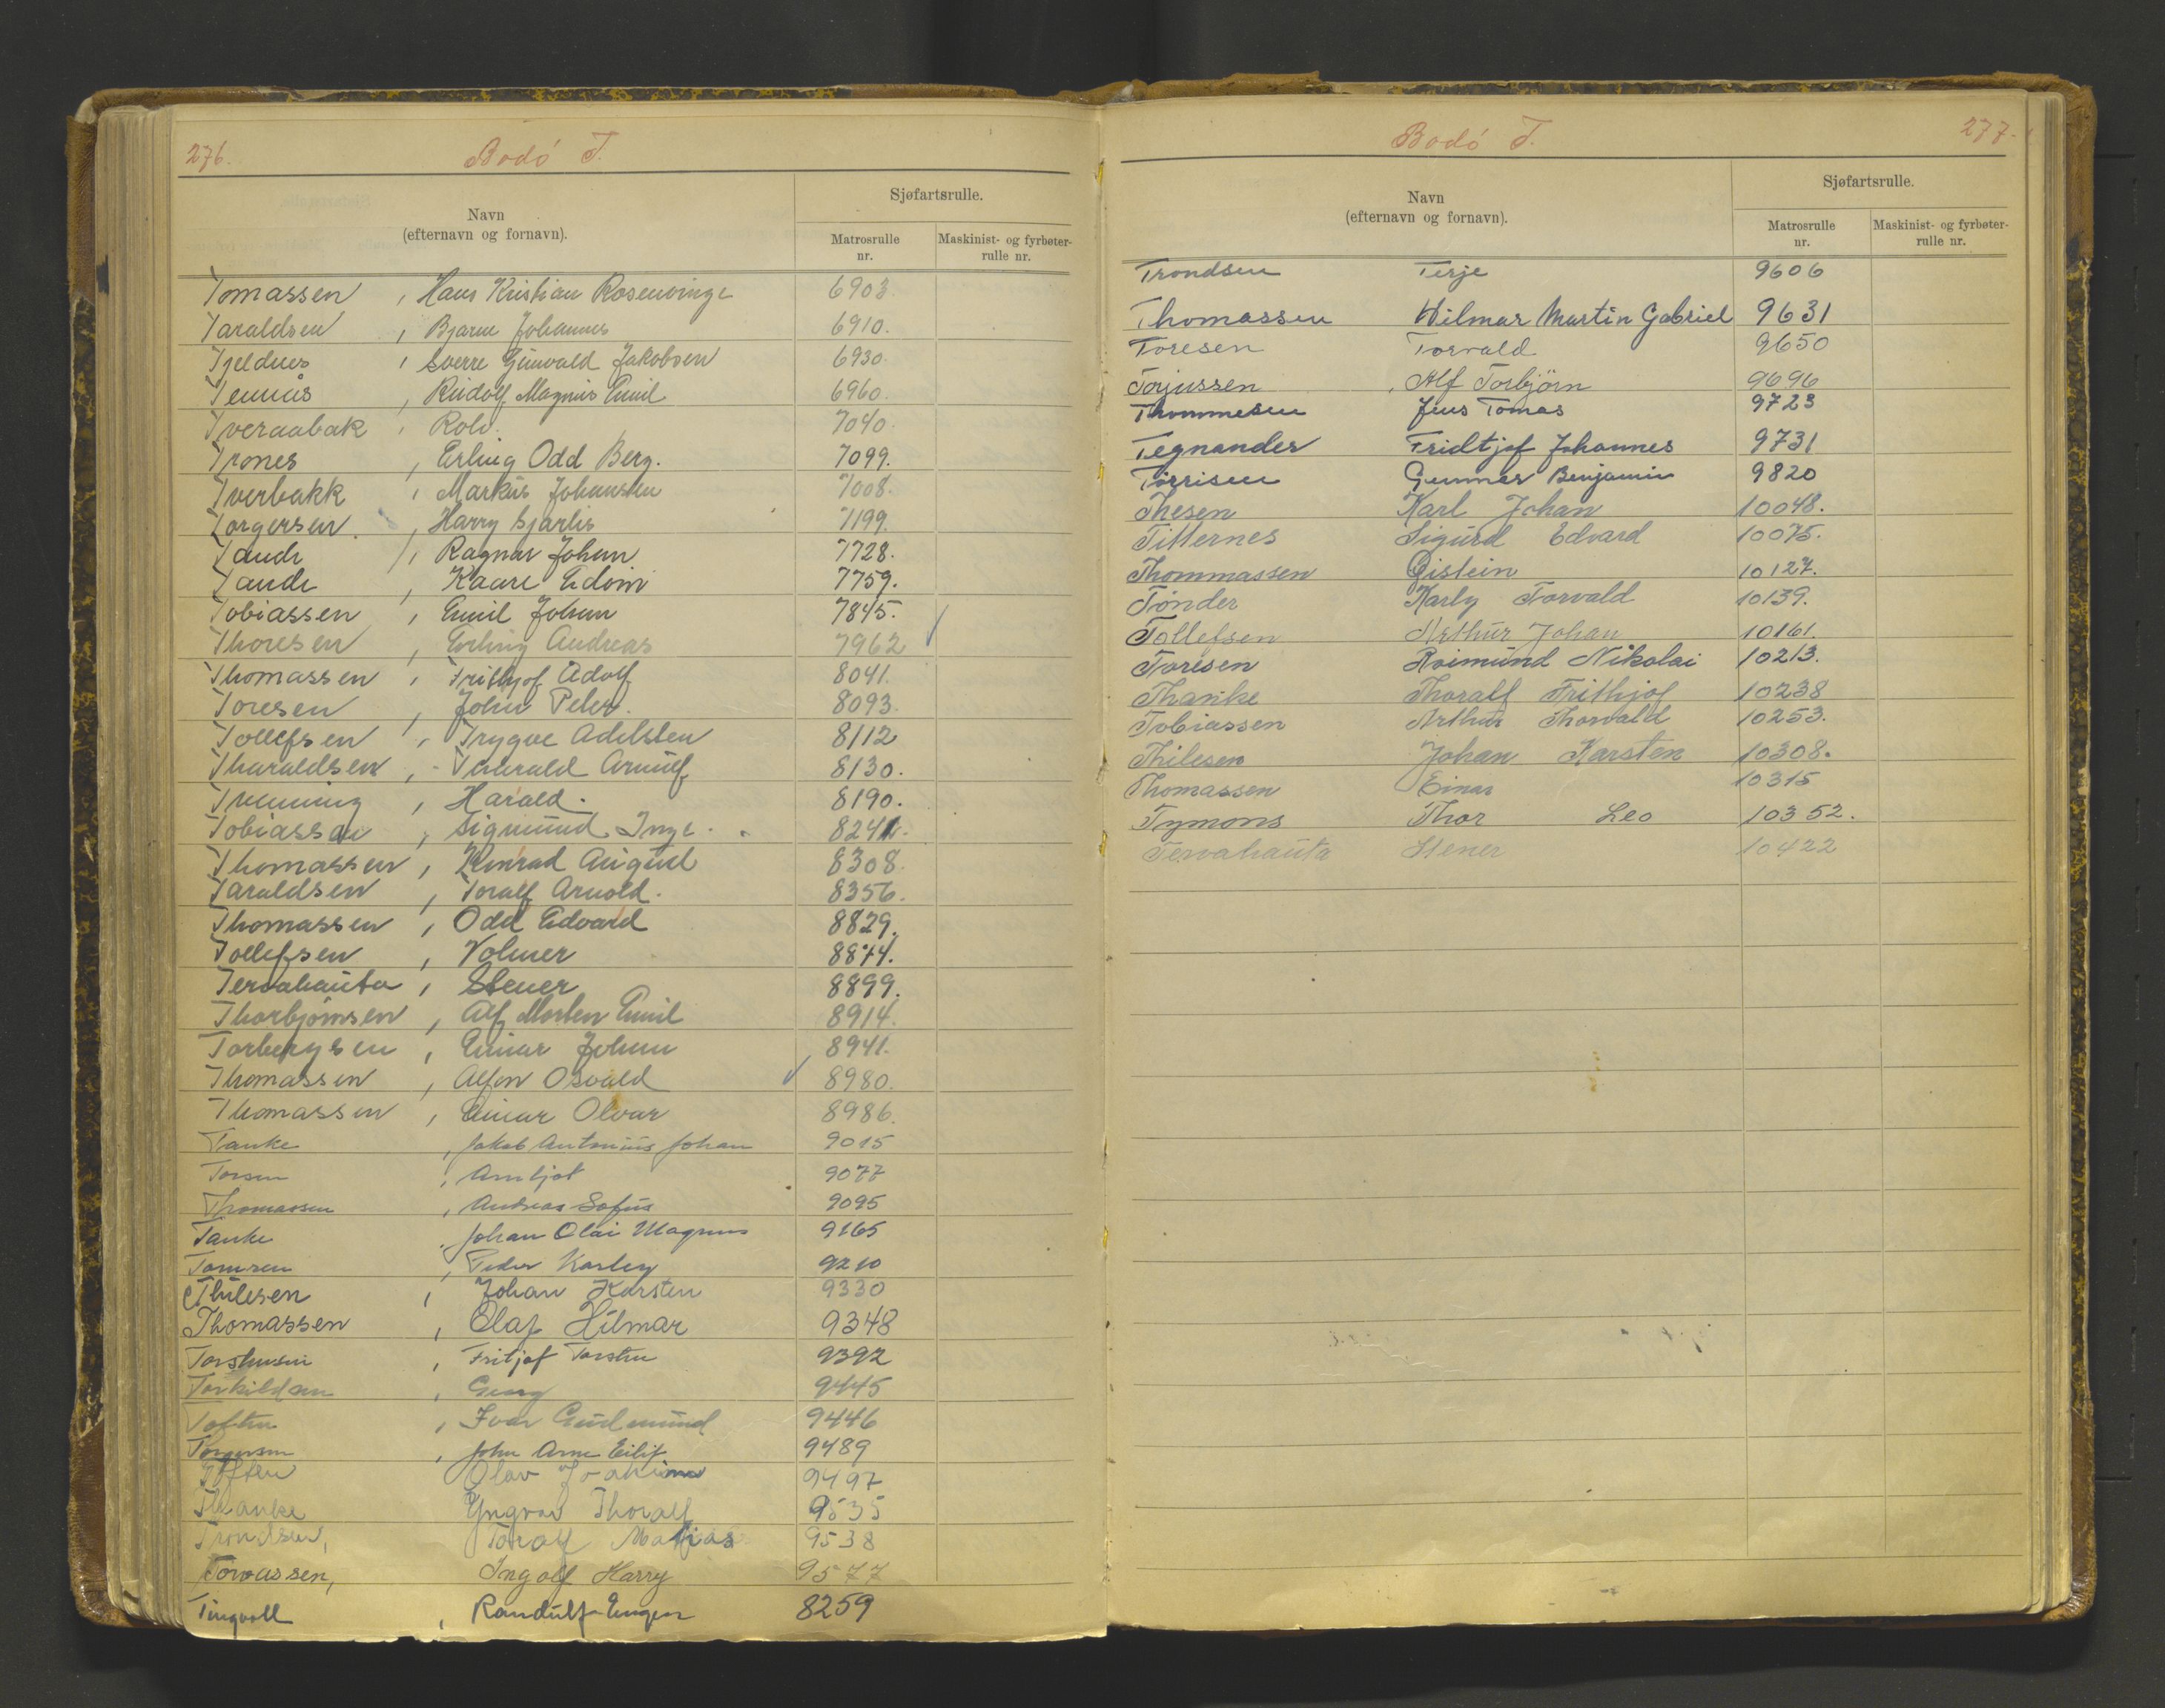 276.
Bodö T.
Navn
(efternavn og fornavn).
Sjøfartsrulle.
Matrosrulle
nr.
Maskinist- og fyrbøter-
rulle nr.
Tomassen , Hans Kristian Rosenvinge 6903.
Taraldsen , Bjarne Johannes 6910.
Tjeldnes , Sverre Gunvald Jakobsen 6930.
, Rudolf Magnus Emil 6960.
Tveraabak , Rolv. 7040.
Trones , Erling Odd Berg. 7099.
Tverbakk , Markus Johansten 7008.
Torgersen , Harry Hjarlis 7199.
Tande , Ragnar Johan 7728.
Tande , Kaare Edvin 7759.
Tobiassen , Emil Johan 7845.
Thoresen , Erling Andreas 7962
Thomassen , Frithjof Adolf 8041.
Toresen , John Peder. 8093.
Tollefsen , Trygve Adelsten 8112
Tharaldsen , Tharald Arnulf 8130.
, Harald. 8190.
Tobiassen , Sigmund Inge.
Thomassen , Konrad August 8308.
Taraldsen , Toralf Arnold. 8356.
Thomassen , Odd Edvard 8829.
Tollefsen , Volmer 8874.
Tervahauta , Stener 8899.
Thorbjørnsen , Alf Morten Emil 8914.
Torbergsen , Einar Johan 8941.
Thomassen , Alfon Osvald 8980.
Thomassen , Einar Olvar 8986.
Tanke , Jakob Antonius Johan 9015
, Arnljot 9077
Thomassen , Andreas Sofus 9095
Tanke , Johan Olai Magnus 9165
, Peder Karley 9210
Thilesen , Johan Karsten 9330
Thomassen , Olaf Hilmar 9348
Torstensen , Fritjof Torsten 9392
Torkildsen , Georg 9445
Toften , Ivar Gudmund 9446
Torgersen , John Arne Eilif 9489
Toften Olav Joakim 9497
Thanke Yngvar Thoralf 9535
Trondsen, Toralf Matias 9538
Ingolf Harry 9577
Tingvoll , Randulf Eugen 8259
277.
Bodö T.
Navn
(efternavn og fornavn).
Sjøfartsrulle.
Matrosrulle
nr.
Maskinist- og fyrbøter-
rulle nr.
Trondsen Terje 9606
Thomassen Wilmar Martin Gabriel 9631
Toresen Torvald 9650
Torjussen , Alf Torbjörn 9696
Thommesen Jens Tomas 9723
Tegnander Fridtjof Johannes 9731
Tørrisen Gunnar Benjamin 9820
Thesen Karl Johan 10048.
Titternes Sigurd Edvard 10075.
Thommassen Øistein 10127.
Tönder Karly Torvald 10139.
Tollefsen Arthur Johan 10161.
Toresen Reimund Nikolai 10213.
Thanke Thoralf Frithjof 10238
Tobiassen Arthur Thorvald 10253.
Thilesen Johan Karsten 10308.
Thomassen Einar 10315
Tymons Thor Leo 10352.
Tervahauta Stener 10422